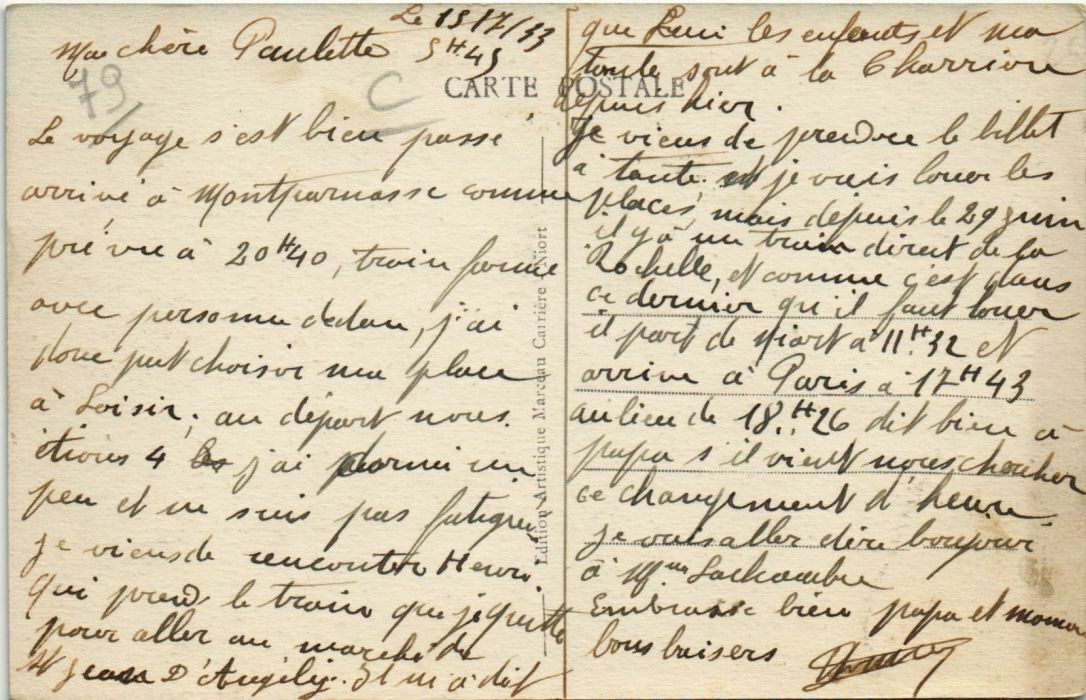 Le 15/7/33
Ma chère Paulette 5H45
79/
C
CARTE POSTALE
Le voyage s'est bien passé
arrivé à Montparnasse comme
prévu à 20H40, train formé
avec personne dedan, j'ai
donc put choisir ma place
à Loisir, au départ nous
étions 4 j'ai dormi un
peu et ne suis pas fatigué
je viens de rencontrer Henri
qui prend le train que je quitte
pour aller au marché de
St Jean D'Angély. Il m'a dit
Edition Artistique Marceau Carrière - Niort
que les enfants et ma
tante sont à la Charrière
depuis hier.
Je viens de prendre le billet
à tante et je vais louer les
places, mais depuis le 29 Juin
il y à un train direct de la
Rochelle, et comme c'est dans
ce dernier qu'il faut louer
il part de Niort à 11H32 et
arrive à Paris à 17H43
au lieu de 18H26 dit bien à
papa s'il vient nous chercher
ce changement d'heure.
je vais aller dire bonjour
à Mme Lachambre
Embrasse bien papa et maman
bons baisers